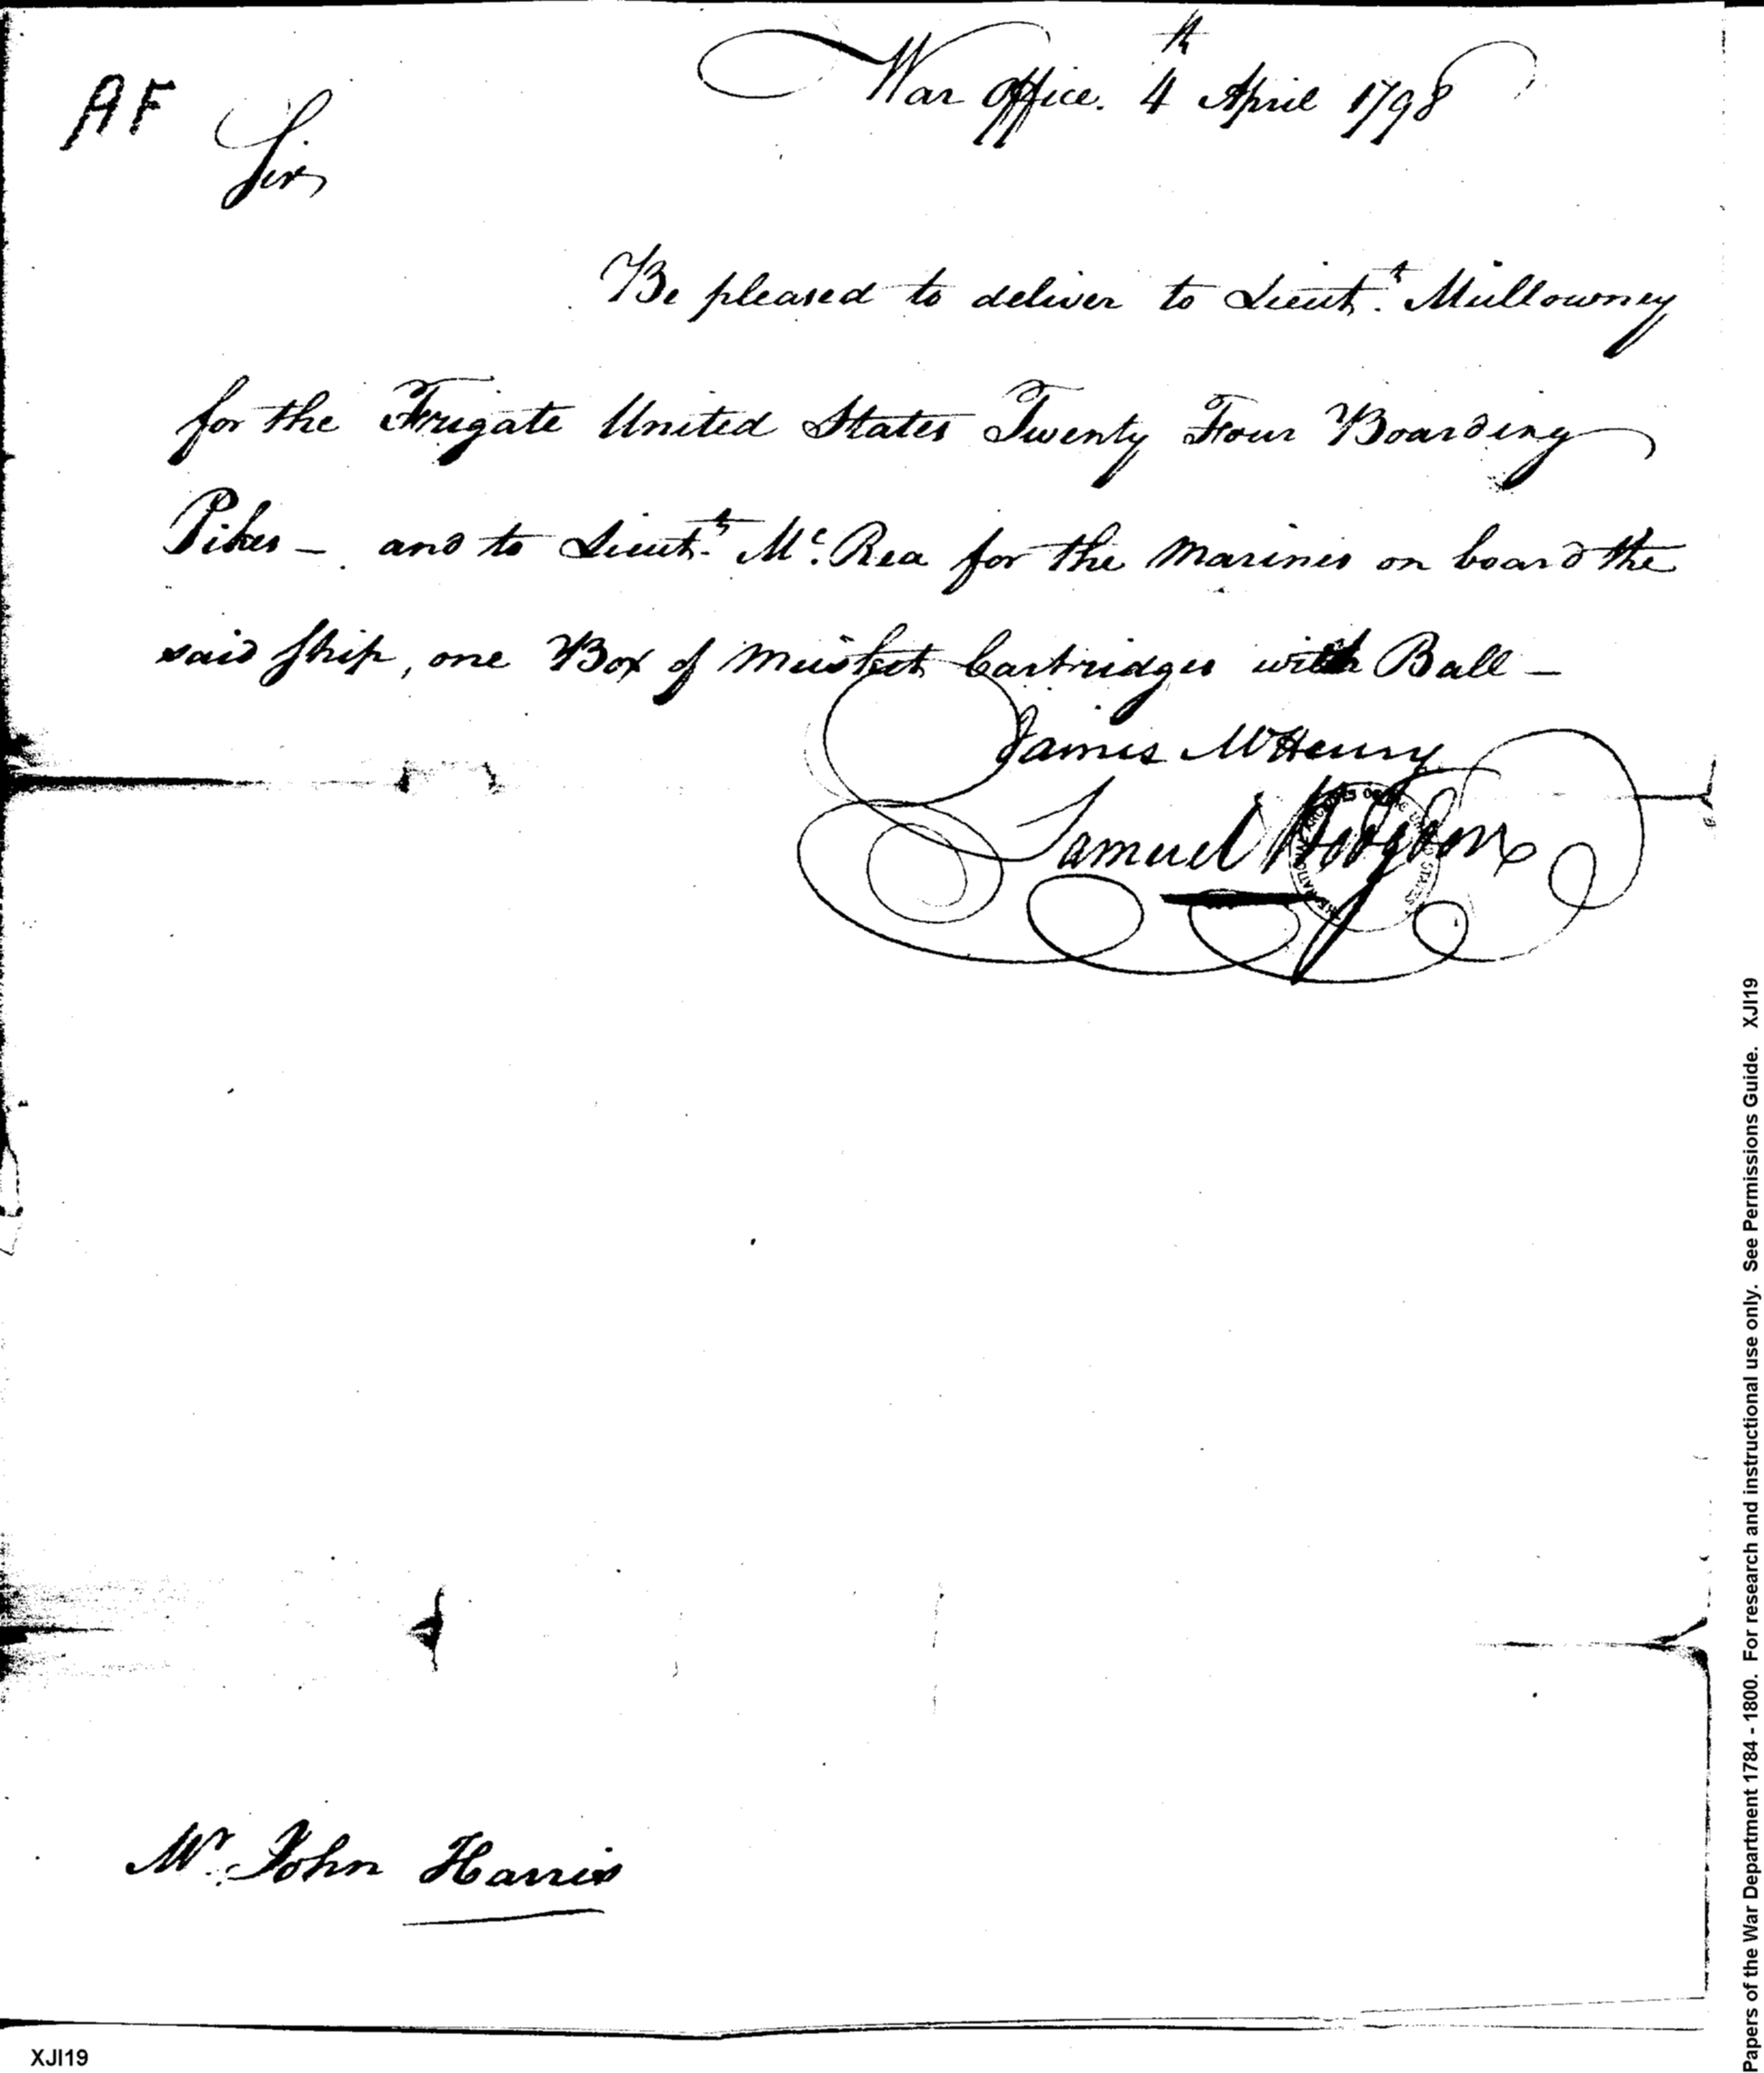 War Office. 4th April 1798
AF
Sir
Be pleased to deliver to Lieut.t Mullowney
for the Frigate United States Twenty Four Boarding
Pikes – and to Lieut.t Mc. Rea for the Marines on board the
said Ship, one Box of Musket Cartridges with Ball –
James McHenry
Samuel Hodgdon
Mr. John Harris
XJI19
Papers of the War Department 1784 - 1800. For research and instructional use only. See Permissions Guide. XJI19